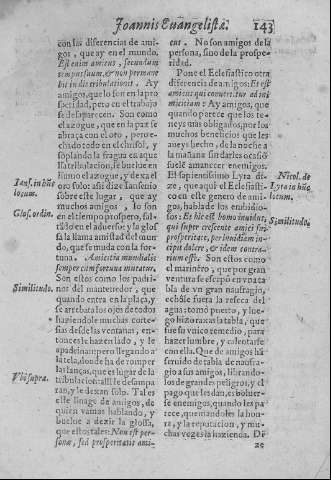 Joannis Euangelista.
143
con las diferencias de ami-
gos, que ay en el mundo.
Est enim amicus, secundum
tempus suum, & non permane
bit in die tribulationis. Ay
amigos, que lo son en la pro
speridad, pero en el trabajo
se desaparecen. Son como
el azogue, que en la paz se
abraça con el oro, pero e-
chado todo en el crisol, y
soplando la fragua en aque
lla tribulacion, se buelue en
humo el azogue, y dexa el
oro solo: assi dize Iansenio
sobre este lugar, que ay
muchos amigos, que lo son
en el tiempo prospero, fal-
tando en el aduerso: y la glosa
la llama amistad del mun
do, que se muda con la for-
tuna. Amicitia mundialis
semper cum fortuna mutatur.
Son estos como los padri-
nos del mantenedor, que
quando entra en la plaça, y
se arrebata los ojos de todos
haziendole muchas corte-
sias desde las ventanas, en-
tonces le hazen lado, y le
apadrinan: pero llegando a
la tela, donde ha de romper
las lanças, que es lugar de la
tribulacion alli le desampa-
ran, y le dexan solo. Tal es
este linage de amigos, de
quien vamos hablando, y
buelue a dezir la glossa,
que estos tales: Non est per-
sonæ, sed prosperitatis ami-
Ians. in hūc
locum.
Glos. ordin.
Similitudo.
Vbi supra.
cus. No son amigos de la
persona, sino de la prospe-
ridad.
Pone el Eclesiastico otra
diferencia de amigos: Et est
amicus qui conuertitur ad ini
micitiam: Ay amigos, que
quando parece que los te-
neys mas obligados, por los
muchos beneficios que les
aueys hecho, de la noche a
la mañana sin darles ocasiō
suelē amanecer enemigos.
El sapientissimo Lyra di-
ze, que aqui el Eclesiasti-
co en este genero de ami-
gos, habla de los embidio-
sos: Et hic est homo inuidus,
qui super crescente amici sui
prosperitate, per inuidiam in-
cipit dolere, & idem contra-
rium est. Son estos como
el marinero, que por gran
ventura se escapò en vna ta
bla de vn gran naufragio,
echòle fuera la resaca del
agua: tomò puerto, y lue-
go hizo raxas la tabla, que
fue su vnico remedio, para
hazer lumbre, y calentarse
con ella. Que de amigos hā
seruido de tabla de naufra-
gio a sus amigos, librando-
los de grandes peligros, y el
pago que les dan, es boluer-
se enemigos, quando les pa
rece, que mandoles la hon-
ra, y la reputacion, y mu-
chas vezes la hazienda. De
Nicol. de
Lyra in hūc
locum.
Similitudo.